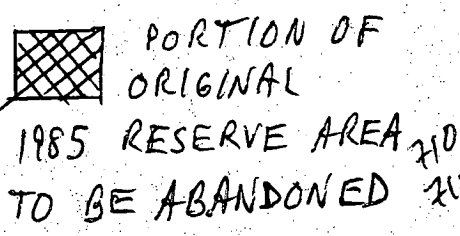 PORTION OF
ORIGINAL
1985 RESERVE AREA
TO BE ABANDONED